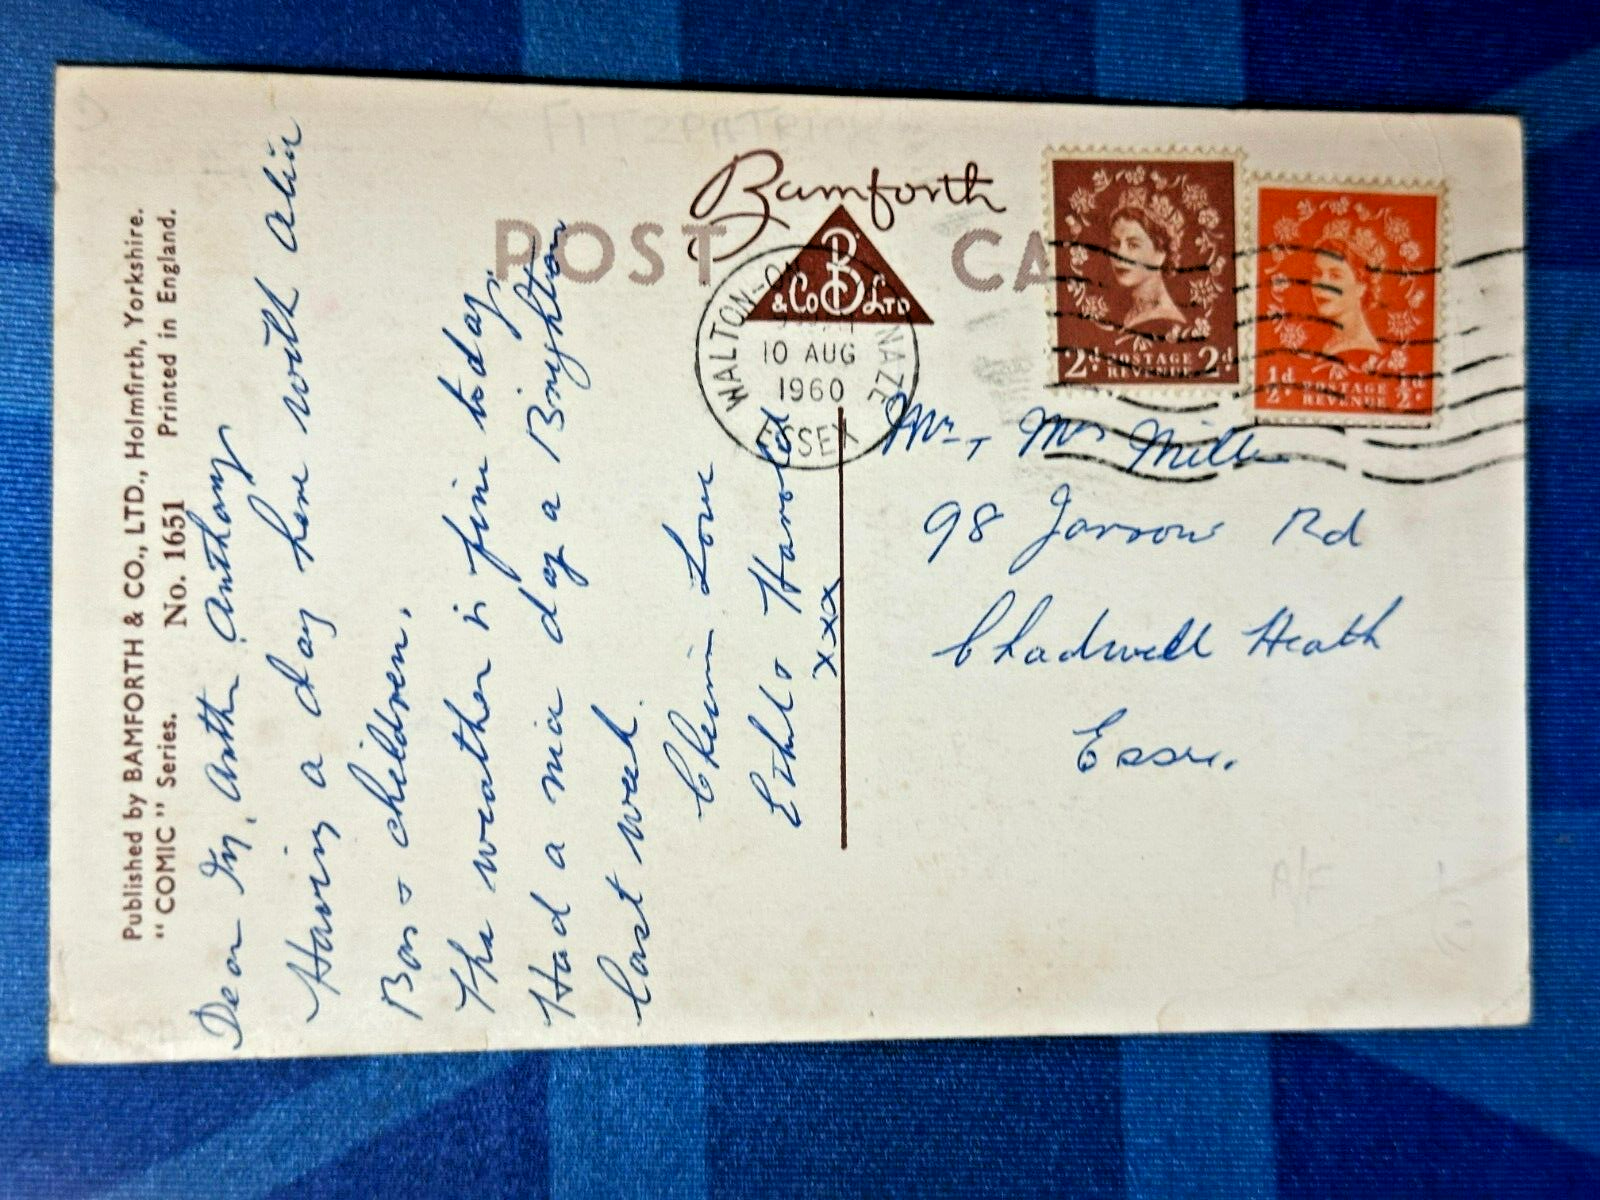 Published by BAMFORTH & CO., LTD., Holmfirth, Yorkshire.
"COMIC" Series. No. 1651 Printed in England.
Bamforth
POST CA
B
& Co D LTD
WALTON-ON NAZE
10 AUG
1960
ESSEX
2d POSTAGE 2d
REVENUE
½d POSTAGE ½d
REVENUE
Dear Ivy, Arthur Anthony
Having a day here with Alin
Bas & children.
The weather is fine today.
Had a nice day a Brighton
last week.
Cheerio Love
Ethel & Harold
xxx
Mr + Mrs Miller
98 Jarrow Rd
Chadwell Heath
Essex.
A/F